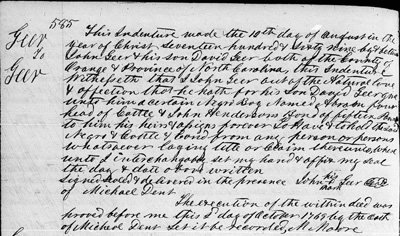 585
Geer
to
Geer
This Indenture made the 10th day of August in the
year of Christ Seventeen hundred & Sixty nine between
John Geer & his Son David Geer both of the County of
Orange & Province of North Carolina, this Indenture
Witnesseth that I John Geer out of the Natural love
& affection that he hath for his Son David Geer give
unto him a certain Negro Boy Named Abram four
head of Cattle & John Hendersons Bond of fifteen
to him his heirs & assigns forever to Have & Hold the said
Negro & Cattle & bond from any person or persons
whatsoever laying title or Claim thereunto, where
unto I interchangably set my hand & affix my seal
the day & date above written
Signed Sealed & delivered in the presence John his mark Geer
of Michael Dent
The execution of the within deed was
proved before me this day of October 1769 by the oath
of Michael Dent let it be recorded, M. Moore